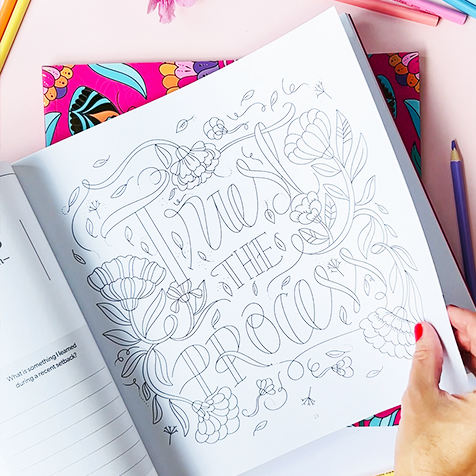 What is something I learned
during a recent setback?
TRUST
THE
PROCESS